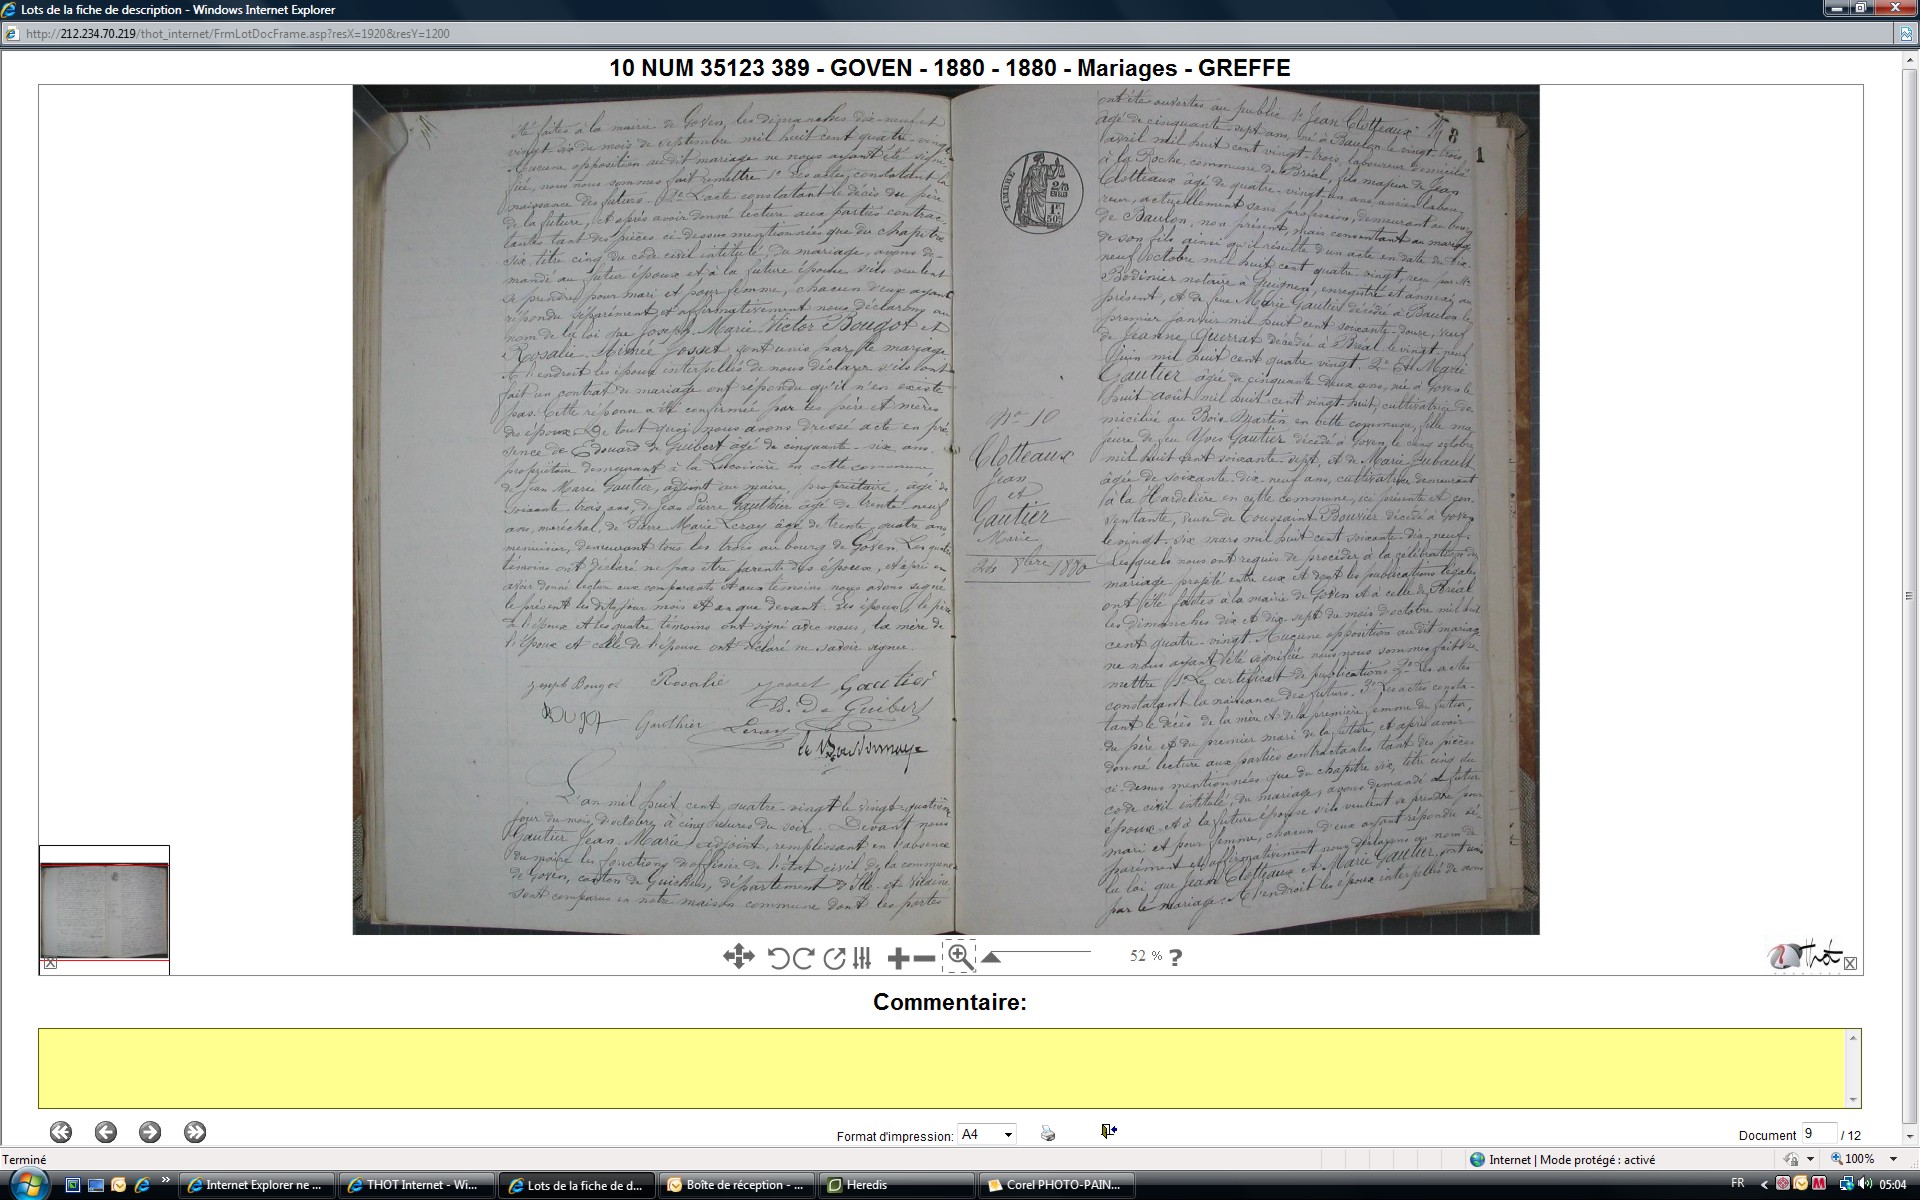 Lots de la fiche de description - Windows Internet Explorer
http://212.234.70.219/thot_internet/FrmLotDocFrame.asp?resX=1920&resY=1200
10 NUM 35123 389 - GOVEN - 1880 - 1880 - Mariages - GREFFE
été faites à la mairie de Goven, les dimanches dix-neuf et
vingt-six du mois de septembre mil huit cent quatre-vingt
Aucune opposition audit mariage ne nous ayant été signi-
fiée, nous nous sommes fait remettre 1° Les actes constatant la
naissance des futurs. 2° L'acte constatant le décès du père
de la future, Et après avoir donné lecture aux parties contrac
tantes tant des pièces ci-dessus mentionnées que du chapitre
six, titre cinq du code civil intitulé, du mariage, avons de-
mandé au futur époux et à la future épouse s'ils veulent
se prendre pour mari et pour femme, chacun d'eux ayant
répondu séparément et affirmativement nous déclarons au
nom de la loi que Joseph Marie Victor Bougot et
Rosalie Aimée Josset sont unis par le mariage
Et à l'endroit les époux interpellés de nous déclarer s'ils ont
fait un contrat de mariage ont répondu qu'il n'en existe
pas. Cette réponse a été confirmée par les père et mères
des époux. De tout quoi nous avons dressé acte en pré
sence de Edouard de Guibert âgé de cinquante-six ans,
propriétaire demeurant à la en cette commune
de Jean Marie Gautier, adjoint au maire, propriétaire, âgé de
soixante-trois ans, de Jean Pierre Gauthier âgé de trente-neuf
ans, maréchal, de Pierre Marie Leray âgé de trente-quatre ans
menuisier, demeurant tous les trois au bourg de Goven. Les quatre
témoins ont déclaré ne pas être parents des époux, et après en
avoir donné lecture aux comparants et aux témoins nous avons signé
le présent les dits jour mois et an que devant. Les époux, le père
de l'époux et les quatre témoins ont signé avec nous, la mère de
l'époux et celle de l'épouse ont déclaré ne savoir signer.
Joseph Bougot Rosalie Josset Gautier
D. De Guibert
Bougot Gauthier Leray
L'an mil huit cent quatre-vingt le vingt-quatrième
jour du mois d'octobre, à cinq heures du soir. Devant nous
Gautier Jean Marie adjoint, remplissant en l'absence
du maire les fonctions d'officier de l'état civil de la commune
de Goven, canton de Guichen, département d'Ille-et-Vilaine
sont comparus en notre maison commune dont les portes
TIMBRE
2/10
EN SUS
1F.
50c
N° 10
Clotteaux
Jean
et
Gautier
Marie
24 8bre 1880
8
1
ont été ouvertes au public 1° Jean Clotteaux
âgé de cinquante-sept ans, né à Baulon le vingt-trois
avril mil huit cent vingt-trois, laboureur domicilié
à la Roche commune de Bréal, fils majeur de Jean
Clotteaux âgé de quatre-vingt-un ans, ancien labou-
reur, actuellement sans profession, demeurant au bourg
de Baulon, non présent, mais consentant au mariage
de son fils ainsi qu'il résulte d'un acte en date du dix-
neuf octobre mil huit cent quatre-vingt, reçu par Me
Bodinier notaire à Guignen, enregistré et annexé au
présent, et de feue Marie Gautier décédée à Baulon le
premier janvier mil huit cent soixante-douze, veuf
de Jeanne Guerrat décédée à Bréal le vingt-neuf
juin mil huit cent quatre-vingt. 2° Et Marie
Gautier âgée de cinquante-deux ans, née à Goven le
huit août mil huit cent vingt-huit, cultivatrice do-
miciliée au Bois Martin en cette commune, fille ma
jeure de feu Yves Gautier décédé à Goven le cinq octobre
mil huit cent soixante-sept, et de Marie Jubault
âgée de soixante-dix-neuf ans, cultivatrice demeurant
à la Hardelière en cette commune, ici présente et con-
sentante, veuve de Toussaint Bouvier décédé à Goven
le vingt-six mars mil huit cent soixante-dix-neuf.
Lesquels nous ont requis de procéder à la célébration du
mariage projeté entre eux et dont les publications légales
ont été faites à la mairie de Goven et à celle de Bréal
les dimanches dix et dix-sept du mois d'octobre mil huit
cent quatre-vingt. Aucune opposition audit mariage
ne nous ayant été signifiée nous nous sommes fait re
mettre 1° Le certificat de publications 2° Les actes
constatant la naissance des futurs. 3° Les actes consta-
tant le décès de la mère et de la première femme du futur,
du père et du premier mari de la future, et après avoir
donné lecture aux parties contractantes tant des pièces
ci-dessus mentionnées que du chapitre six, titre cinq du
code civil intitulé, du mariage, avons demandé au futur
époux et à la future épouse s'ils veulent se prendre pour
mari et pour femme, chacun d'eux ayant répondu sé-
parément et affirmativement nous déclarons au nom de
la loi que Jean Clotteaux et Marie Gautier sont unis
par le mariage. Et à l'endroit les époux interpellés de nous
52 % ?
Thot
Commentaire:
Format d'impression: A4
Document 9 / 12
Terminé
Internet | Mode protégé : activé
100%
Internet Explorer ne ...
THOT Internet - Wi...
Lots de la fiche de d...
Boîte de réception - ...
Heredis
Corel PHOTO-PAIN...
FR
05:04